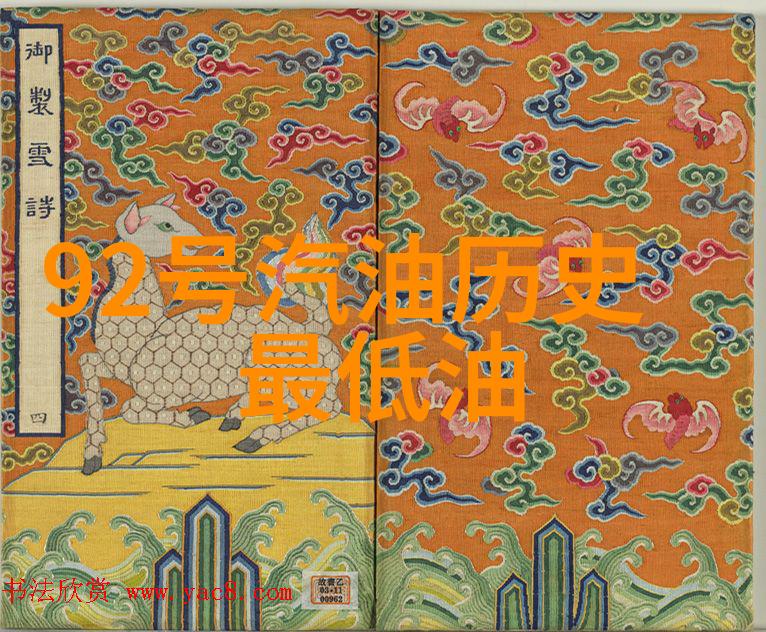 御製雪詩
四
92号汽油历史
最低油
书法欣赏 www.yac8.com
故書乙
03•11
00962